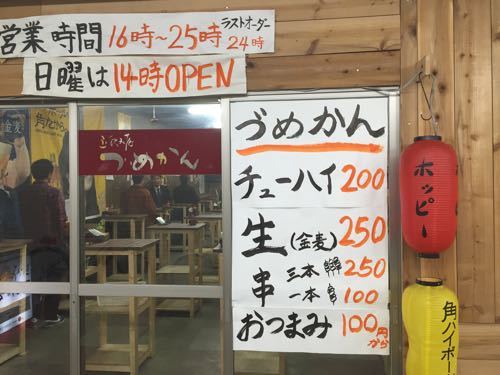 営業時間 16時~25時 ラストオーダー 24時
日曜は14時OPEN
金麦
角だから。
づめかん
づめかん
チューハイ 200
生(金麦) 250
串 三本 250
一本 100
おつまみ 100円から
ホッピー
角ハイボー